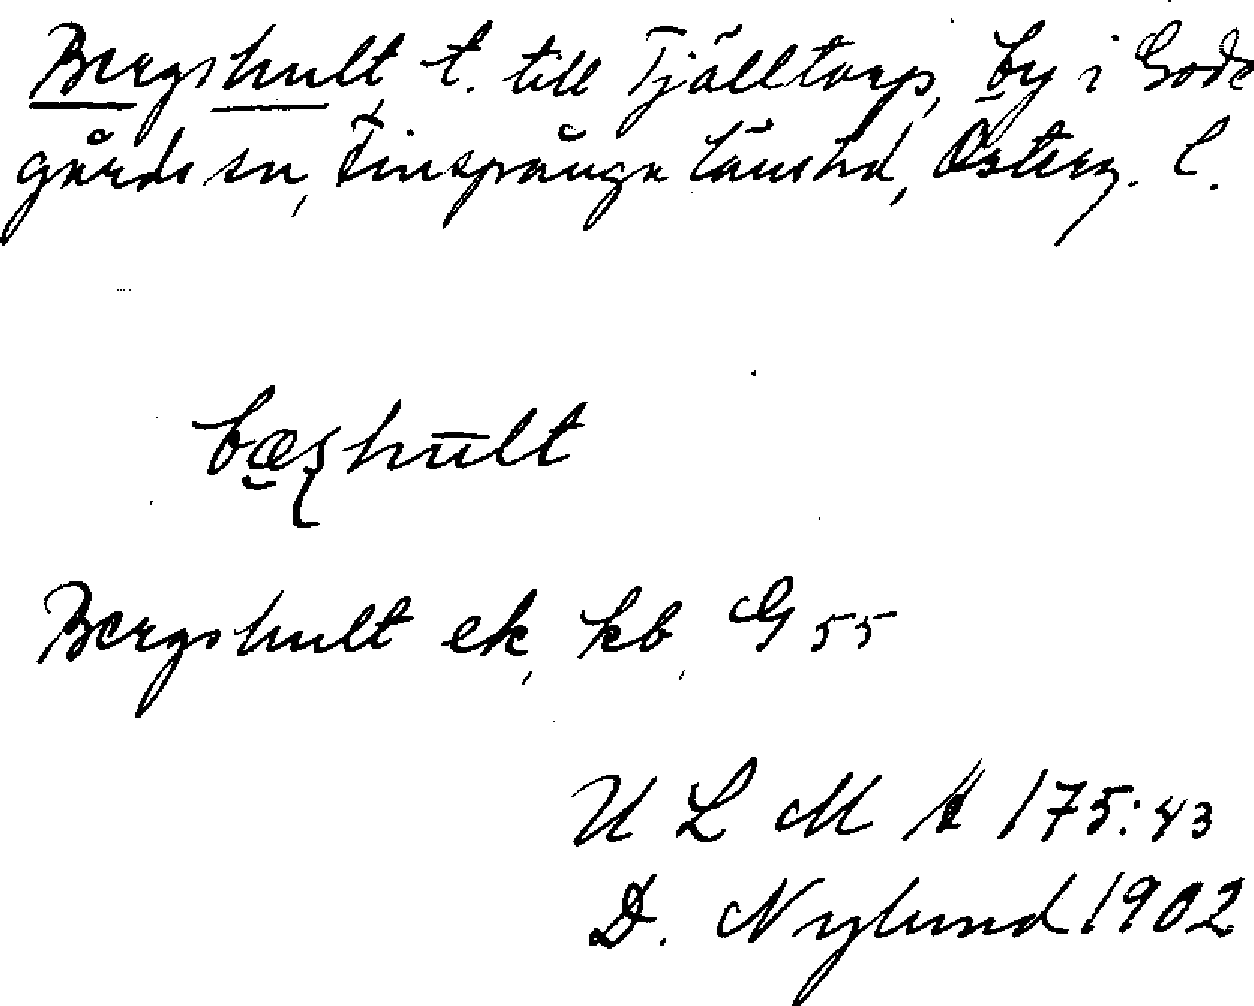 Bergshult, t. till Tjälltorp, by i Gode
gårds sn, Finspånga länshd, Österg. l.
bæʂhūlt
Bergshult ek, kb, G 55
U L M A 175:43
D. Nylund 1902